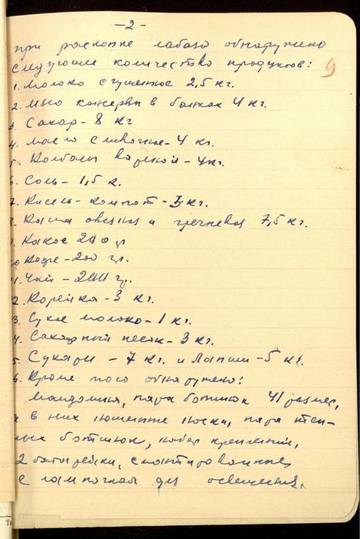 -2-
при раскопке лабаза обнаружено
следующие количество продуктов: 9
1. Молоко сгущенное 2,5 кг.
2. Мясо консервы в банках 4 кг.
3. Сахар - 8 кг
4. масло сливочное - 4 кг.
5. Колбасы вареной - 4 кг.
6. Соль - 1,5 к.
7. Кисель - компот - 3 кг.
8. Каша овсяная и гречневая 7,5 кг.
9. Какао 200 гр
10. Кофе - 200 гр.
11. Чай - 200 гр.
12. Корейка - 3 кг.
13. Сухое молоко - 1 кг.
14. Сахарный песок - 3 кг.
15. Сухари - 7 кг. и Лапши - 5 кг.
16. Кроме того обнаружено:
Мандолина, пара ботинок 41 размер,
в них ношенные носки, пара
ботинок, набор креплений,
2 батарейки, смонтированные
с лампочкой для освещения.